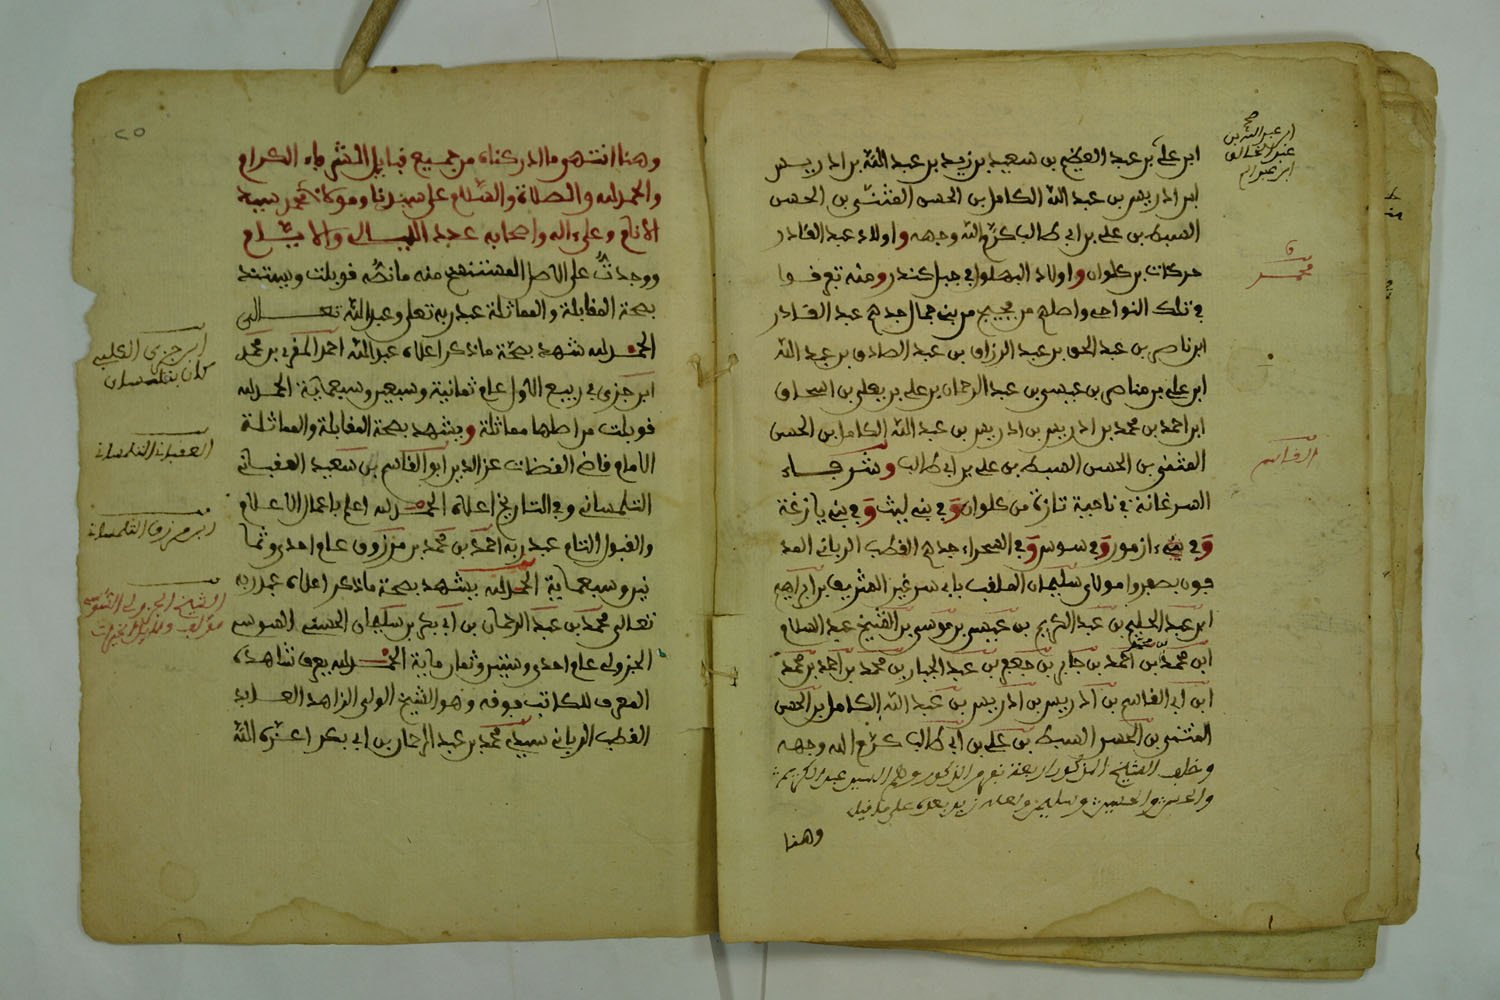 ابن علي بن عبد العظيم بن سعيد بن زيد بن عبد الله بن ادريس
ابن ادريس بن عبد الله الكامل بن الحسن المثنى بن الحسن
السبط بن علي بن ابي طالب كرم الله وجهه واولاد عبد القادر
حركات بن علوان واولاد البهلول في جبل كندر ومنه تفرقوا
في تلك النواحي واصلهم من بني جدهم عبد القادر
ابن ناصر بن عبد الحق بن عبد الرزاق بن عبد الصادق بن عبد الله
ابن علي بن مناصر بن عيسى بن عبد الرحمان بن علي بن يعلى بن اسحاق
ابن احمد بن محمد بن ادريس بن ادريس بن عبد الله الكامل بن الحسن
المثنى بن الحسن السبط بن علي بن ابي طالب وشرفاء
السرغانة في ناحية تازة من علوان وفي بني ليث وفي بني يازغة
وفي ازمور وفي سوس وفي الصحراء جدهم القطب الرباني المد
فون بصفروا مولاي سليمان الملقب بابي سرغين الشريف بن ابراهيم
ابن عبد الحليم بن عبد الكريم بن عيسى بن موسى بن الشيخ عبد السلام
ابن محمد بن احمد بن جابر بن جعفر بن عبد الجبار بن محمد بن احمد بن محمد
بن محمد
ابن ابي القاسم بن ادريس بن ادريس بن عبد الله الكامل بن الحسن
المثنى بن الحسن السبط بن علي بن ابي طالب كرم الله وجهه
وخلف الشيخ المذكور اربعة نفر من الذكور وهم السيد عبد الكريم
والحسن والحسين وسليمن ولعله زيد بعده على ما قيل
وهنا
صح
ابن عبد الله بن
عبد الخالق
ابن عبد
ق
محمد
القاسم
٢٥
وهنا انتهى ما ادركناه من جميع قبايل الشرفاء الكرام
والحمد لله والصلاة والسلام على سيدنا ومولانا محمد سيد
الانام وعلى اله واصحابه عدد الليالي والايام
ووجدت على الاصل المستنسخ منه ما نصه قوبلت وستند
بصحة المقابلة والمماثلة عبد ربه تعلى وعبد الله تعالى
الحمد لله شهد بصحة ما ذكر اعلاه عبد الله احمد المقري بن محمد
ابن جزي في ربيع الاول عام ثمانية وسبعين وسبعماية الحمد لله
قوبلت من اصلها مماثلة ويشهد بصحة المقابلة والمماثلة
الامام قاضي القضات عز الدين ابو القاسم بن سعيد العقباني
التلمساني وفي التاريخ اعلاه الحمد لله اعلم باعمال الاعلام
والقبول التام عبد ربه احمد بن محمد بن مرزوق عام احدى وثما
نين وسبعماية الحمد لله يشهد بصحة ما ذكر اعلاه عبد ربه
تعالى محمد بن عبد الرحمان بن ابي بكر بن سليمان الحسني السوسي
الجزولي عام احدى وستين وثمان ماية الحمد لله يعرف شاهده
المعرف للكاتب فوقه وهو الشيخ الولي الزاهد العابد
القطب الرباني سيدي محمد بن عبد الرحمان بن ابي بكر اعزه الله
ابن جزي الكلبي
كان بتلمسان
العقباني التلمساني
ابن مرزوق التلمساني
الشيخ الجزولي السوسي
مؤلف دلائل الخيرات